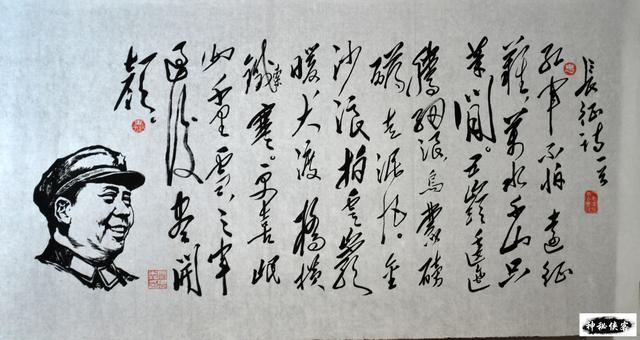 長征詩一首
紅軍不怕遠征
難，萬水千山只
等閒。五嶺逶迤
騰細浪，烏蒙磅
礴走泥丸。金
沙浪拍雲崖
暖，大渡橋橫
鐵索寒。更喜岷
山千里雪，三軍
過後盡開
顏。
神秘侠客